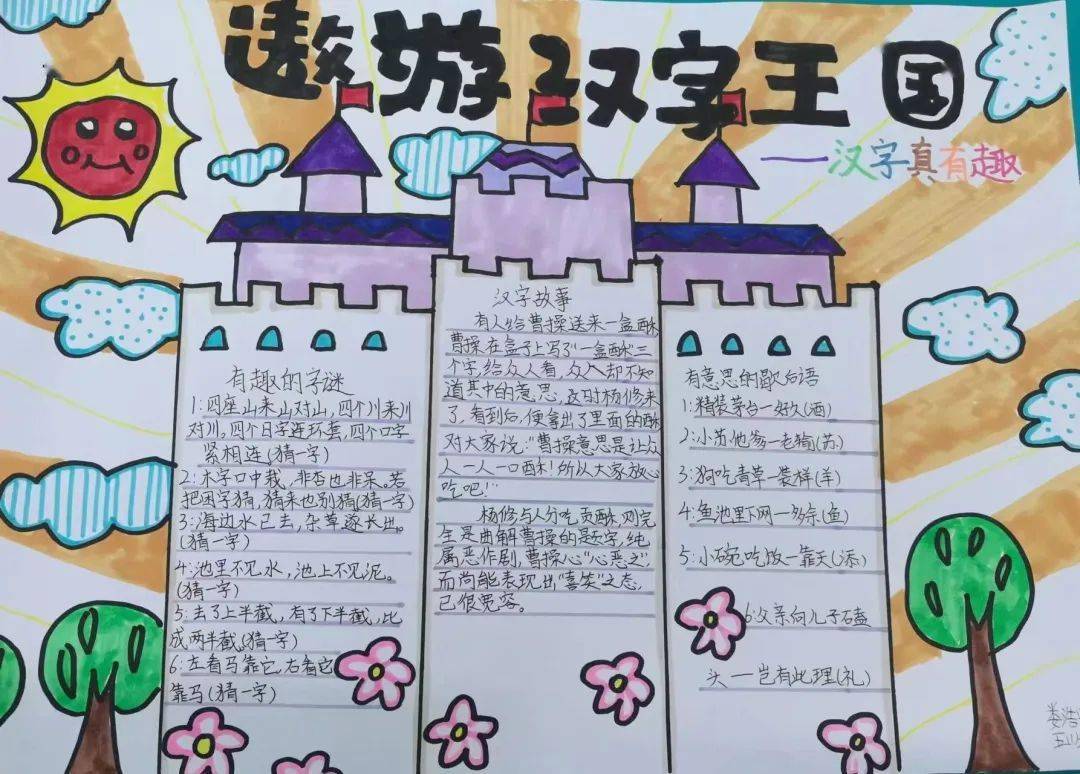 遨游汉字王国
——汉字真有趣
有趣的字谜
1:四座山来山对山,四个川来川
对川,四个日字连环套,四个口字
紧相连(猜一字)
2:木字口中栽,非杏也非呆。若
把困字猜,猜来也别猜(猜一字)
3:海边水已去,杂草逐长出。
(猜一字)
4:池里不见水,池上不见泥。
(猜一字)
5:去了上半截,有了下半截,比
成两半截。(猜一字)
6:左看马靠它,右看它
靠马(猜一字)
汉字故事
有人给曹操送来一盒酥
曹操在盒子上写了"一盒酥"三
个字,给众人看,众人却不知
道其中的意思,这时杨修来
了,看到后,便拿出了里面的酥
对大家说:"曹操意思是让众
人一人一口酥!所以大家放心
吃吧!"
杨修与人分吃贡酥,则完
全是曲解曹操的题字,纯
属恶作剧,曹操心"心恶之",
而尚能表现出"喜笑"之态,
已很宽容。
有意思的歇后语
1:精装茅台—好久(酒)
2:小苏他爹—老
3:狗吃青草—装样(羊)
4:鱼池里下网—多余(鱼)
5:小碗吃饭—靠天(添)
6:父亲向儿子磕
头—岂有此理(礼)
娄浩